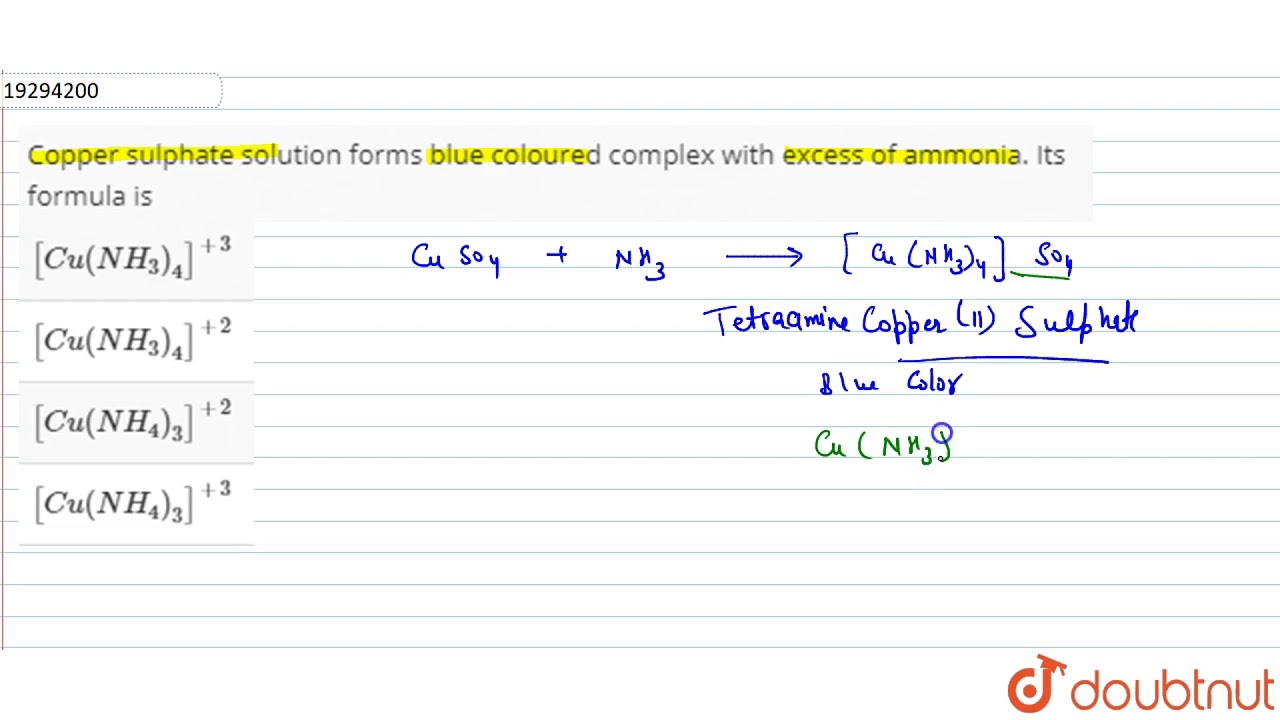 19294200
Copper sulphate solution forms blue coloured complex with excess of ammonia. Its
formula is
[Cu(NH₃)₄]⁺³
[Cu(NH₃)₄]⁺²
[Cu(NH₄)₃]⁺²
[Cu(NH₄)₃]⁺³
CuSO₄ + NH₃ ⟶ [Cu(NH₃)₄] SO₄
Tetraamine Copper (II) Sulphate
Blue Color
Cu(NH₃)
doubtnut